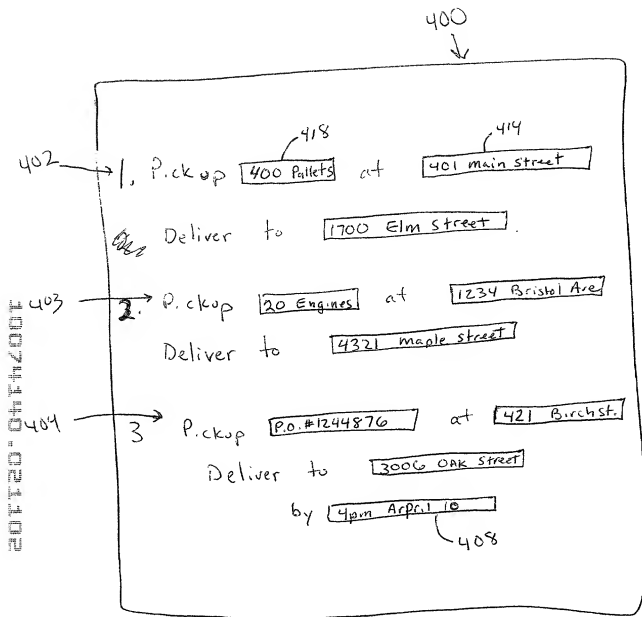 400
418
414
402
1. Pickup 400 Pallets at 401 main street
Deliver to 1700 Elm Street.
403
2. Pickup 20 Engines at 1234 Bristol Ave
Deliver to 4321 maple street
404
3 Pickup P.O.#1244876 at 421 Birchst.
Deliver to 3006 OAK Street
by 4pm Arpril 10
408
10074140.021102